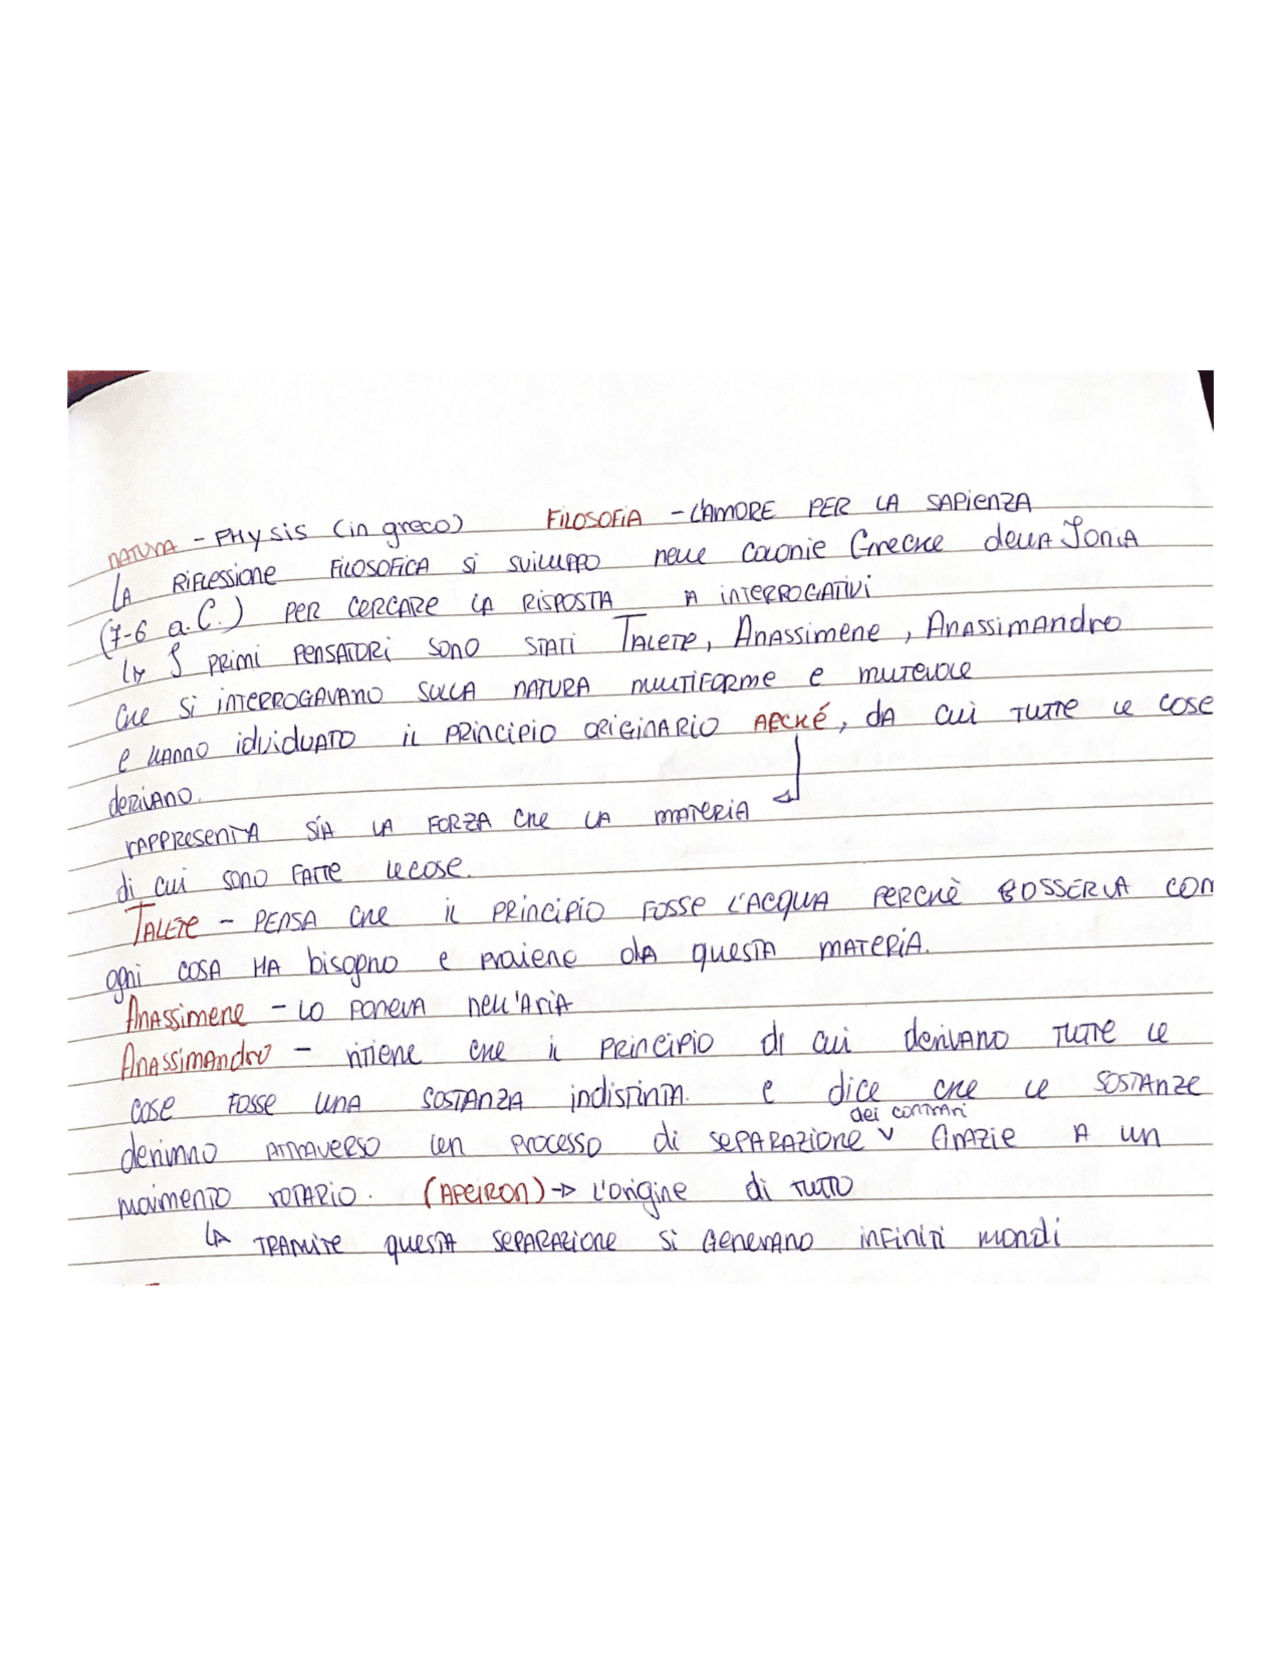 NATURA - PHYSIS (in greco) FILOSOFIA - L'AMORE PER LA SAPIENZA
LA RIFLESSIONE FILOSOFICA SI SVILUPPO nelle colonie Greche della Jonia
(7-6 a.C.) PER CERCARE LA RISPOSTA A INTERROGATIVI
↳ I PRIMI PENSATORI SONO STATI TALETE, Anassimene, Anassimandro
che si interrogavano sulla natura multiforme e mutevole
e hanno iduiduato il principio originario ARCHÉ, da cui tutte le cose
derivano.
rappresenta sia la forza che la materia
di cui sono fatte le cose.
TALETE - PENSA che il principio fosse l'acqua perchè osserva com
ogni cosa ha bisogno e proviene da questa materia.
Anassimene - lo poneva nell'aria
Anassimandro - ritiene che il principio di cui derivano tutte le
cose fosse una sostanza indistinta. e dice che le sostanze
dei contrari
derivano attraverso un processo di separazione ∨ Grazie a un
movimento rotario. (APEIRON) → l'origine di tutto
↳ tramite questa separazione si generano infiniti mondi